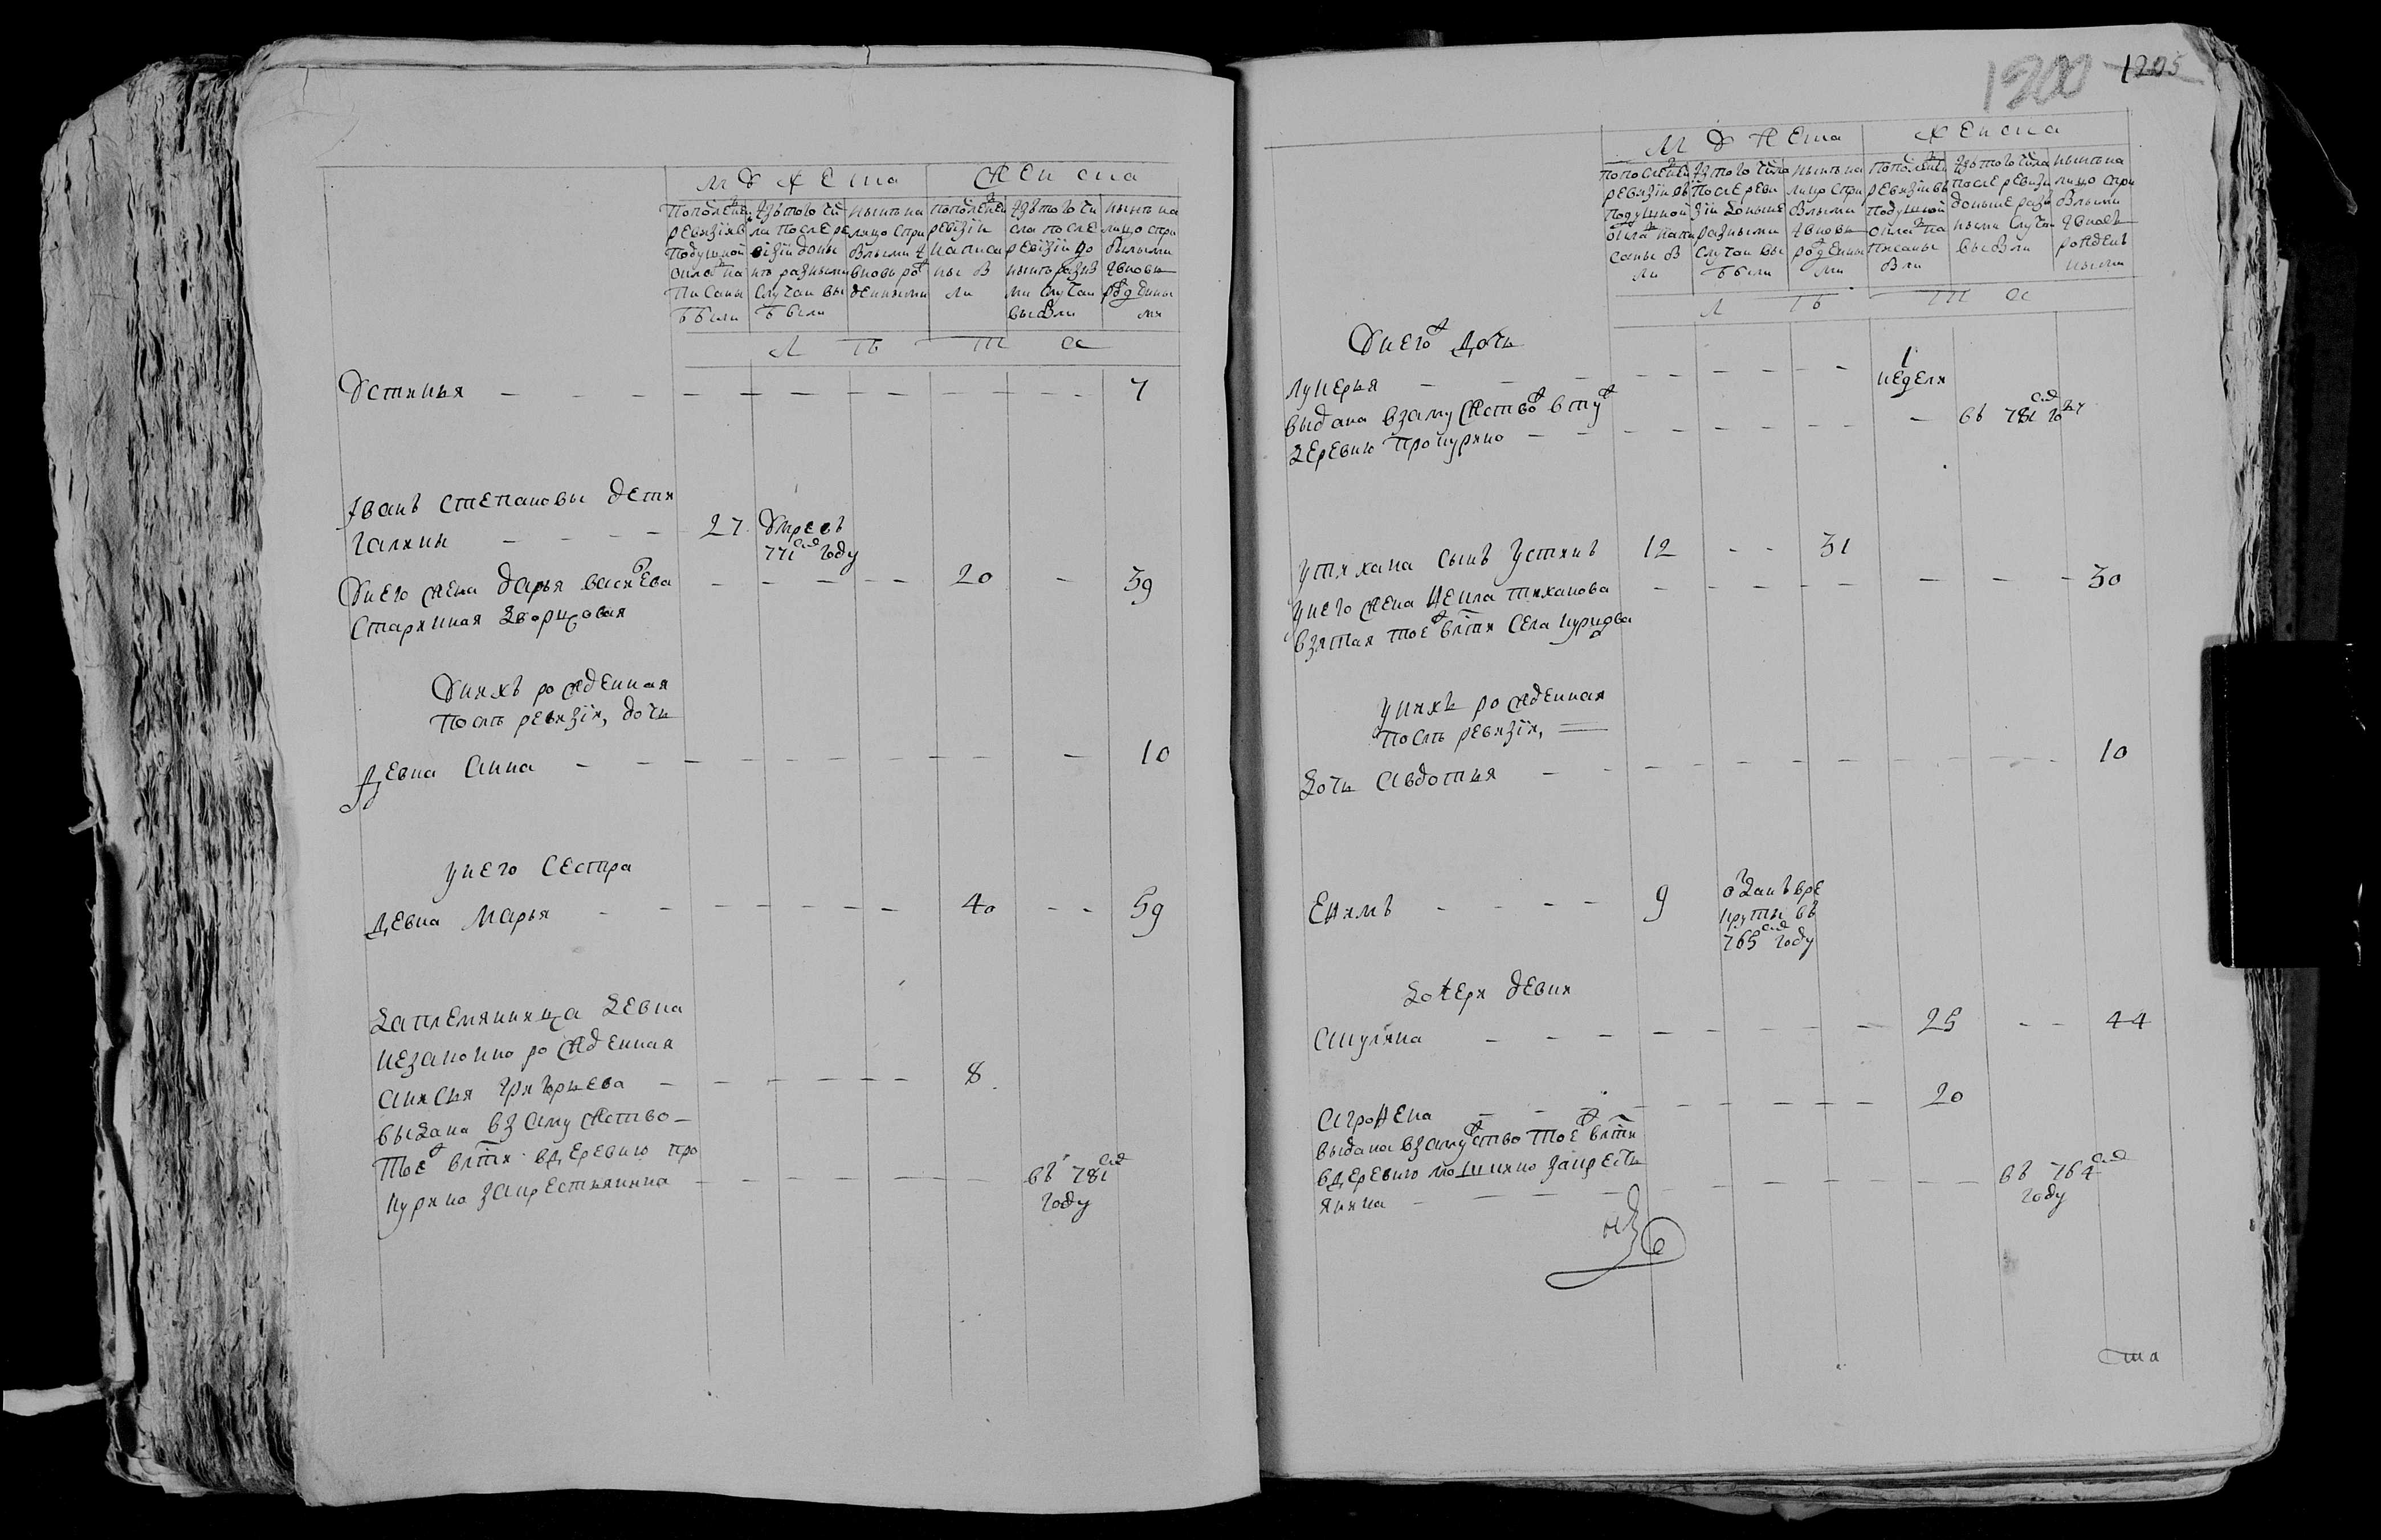 мужеска
женска
По последней ревизии в подушной оклад написаны были
Из того числа после ревизии до ныне разными случаи выбыли
ныне на лицо с прибылыми и вновь рожденными
По последней ревизии написаны были
Из того числа после ревизии до ныне разными случаи выбыли
ныне на лицо с прибылыми и вновь рожденными
лѣта
Устинья 7
Іванъ степановы дети
галкины 27 Умре въ
771м году
У него жена дарья васильева 20 39
старинная дворцовая
У нихъ рожденная
после ревизіи, дочь
девка анна 10
У него сестра
девка марья 40 59
Да племянница девка
незаконно рожденная
анисья григорьева 8
выдана взамужство
тоеж влсти в деревню про
курино за крестьянина въ 781м
году
1200 1205
мужеска
женска
По последней ревизіи в подушной оклад написаны были
Из того числа после ревизіи до ныне разными случаи выбыли
ныне на лицо с прибылыми и вновь рожденными
По последней ревизіи в подушной оклад написаны были
Из того числа после ревизіи до ныне разными случаи выбыли
ныне на лицо с прибылыми и вновь рожденными
лѣта
У негож дочь
лукерья 1
неделя
выдана взамужство в туж
деревню прокурино въ 781м году
У тихана сынъ устинъ 12 31
У него жена фекла тиханова 30
взятая тоеж влсти села
У нихъ рожденная
после ревизіи,
дочь авдотья 10
Ефимъ 9 отданъ в ре
круты въ
765м году
дочери девки
акулина 25 44
аграфена 20
выдана взамужство тоеж влсти
в деревню мошкино за кресть
янина въ 764м
году